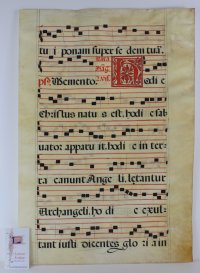 tui ponam super se dem tuã.
ps. Memento. H odi e
Christus natus est. hodi e sal
uator apparuit. hodi e in ter
ra canunt Angeli, letantur
Archangeli. ho di e exul
tant iusti dicentes glori a in